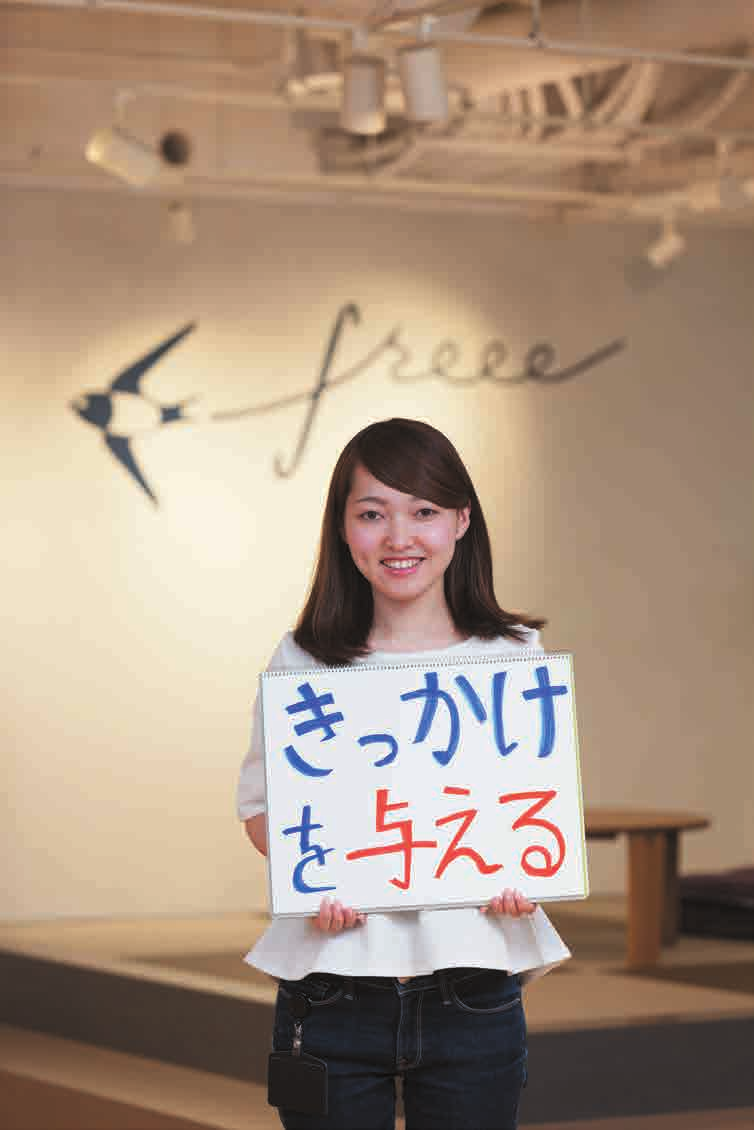 freee
きっかけ
を与える